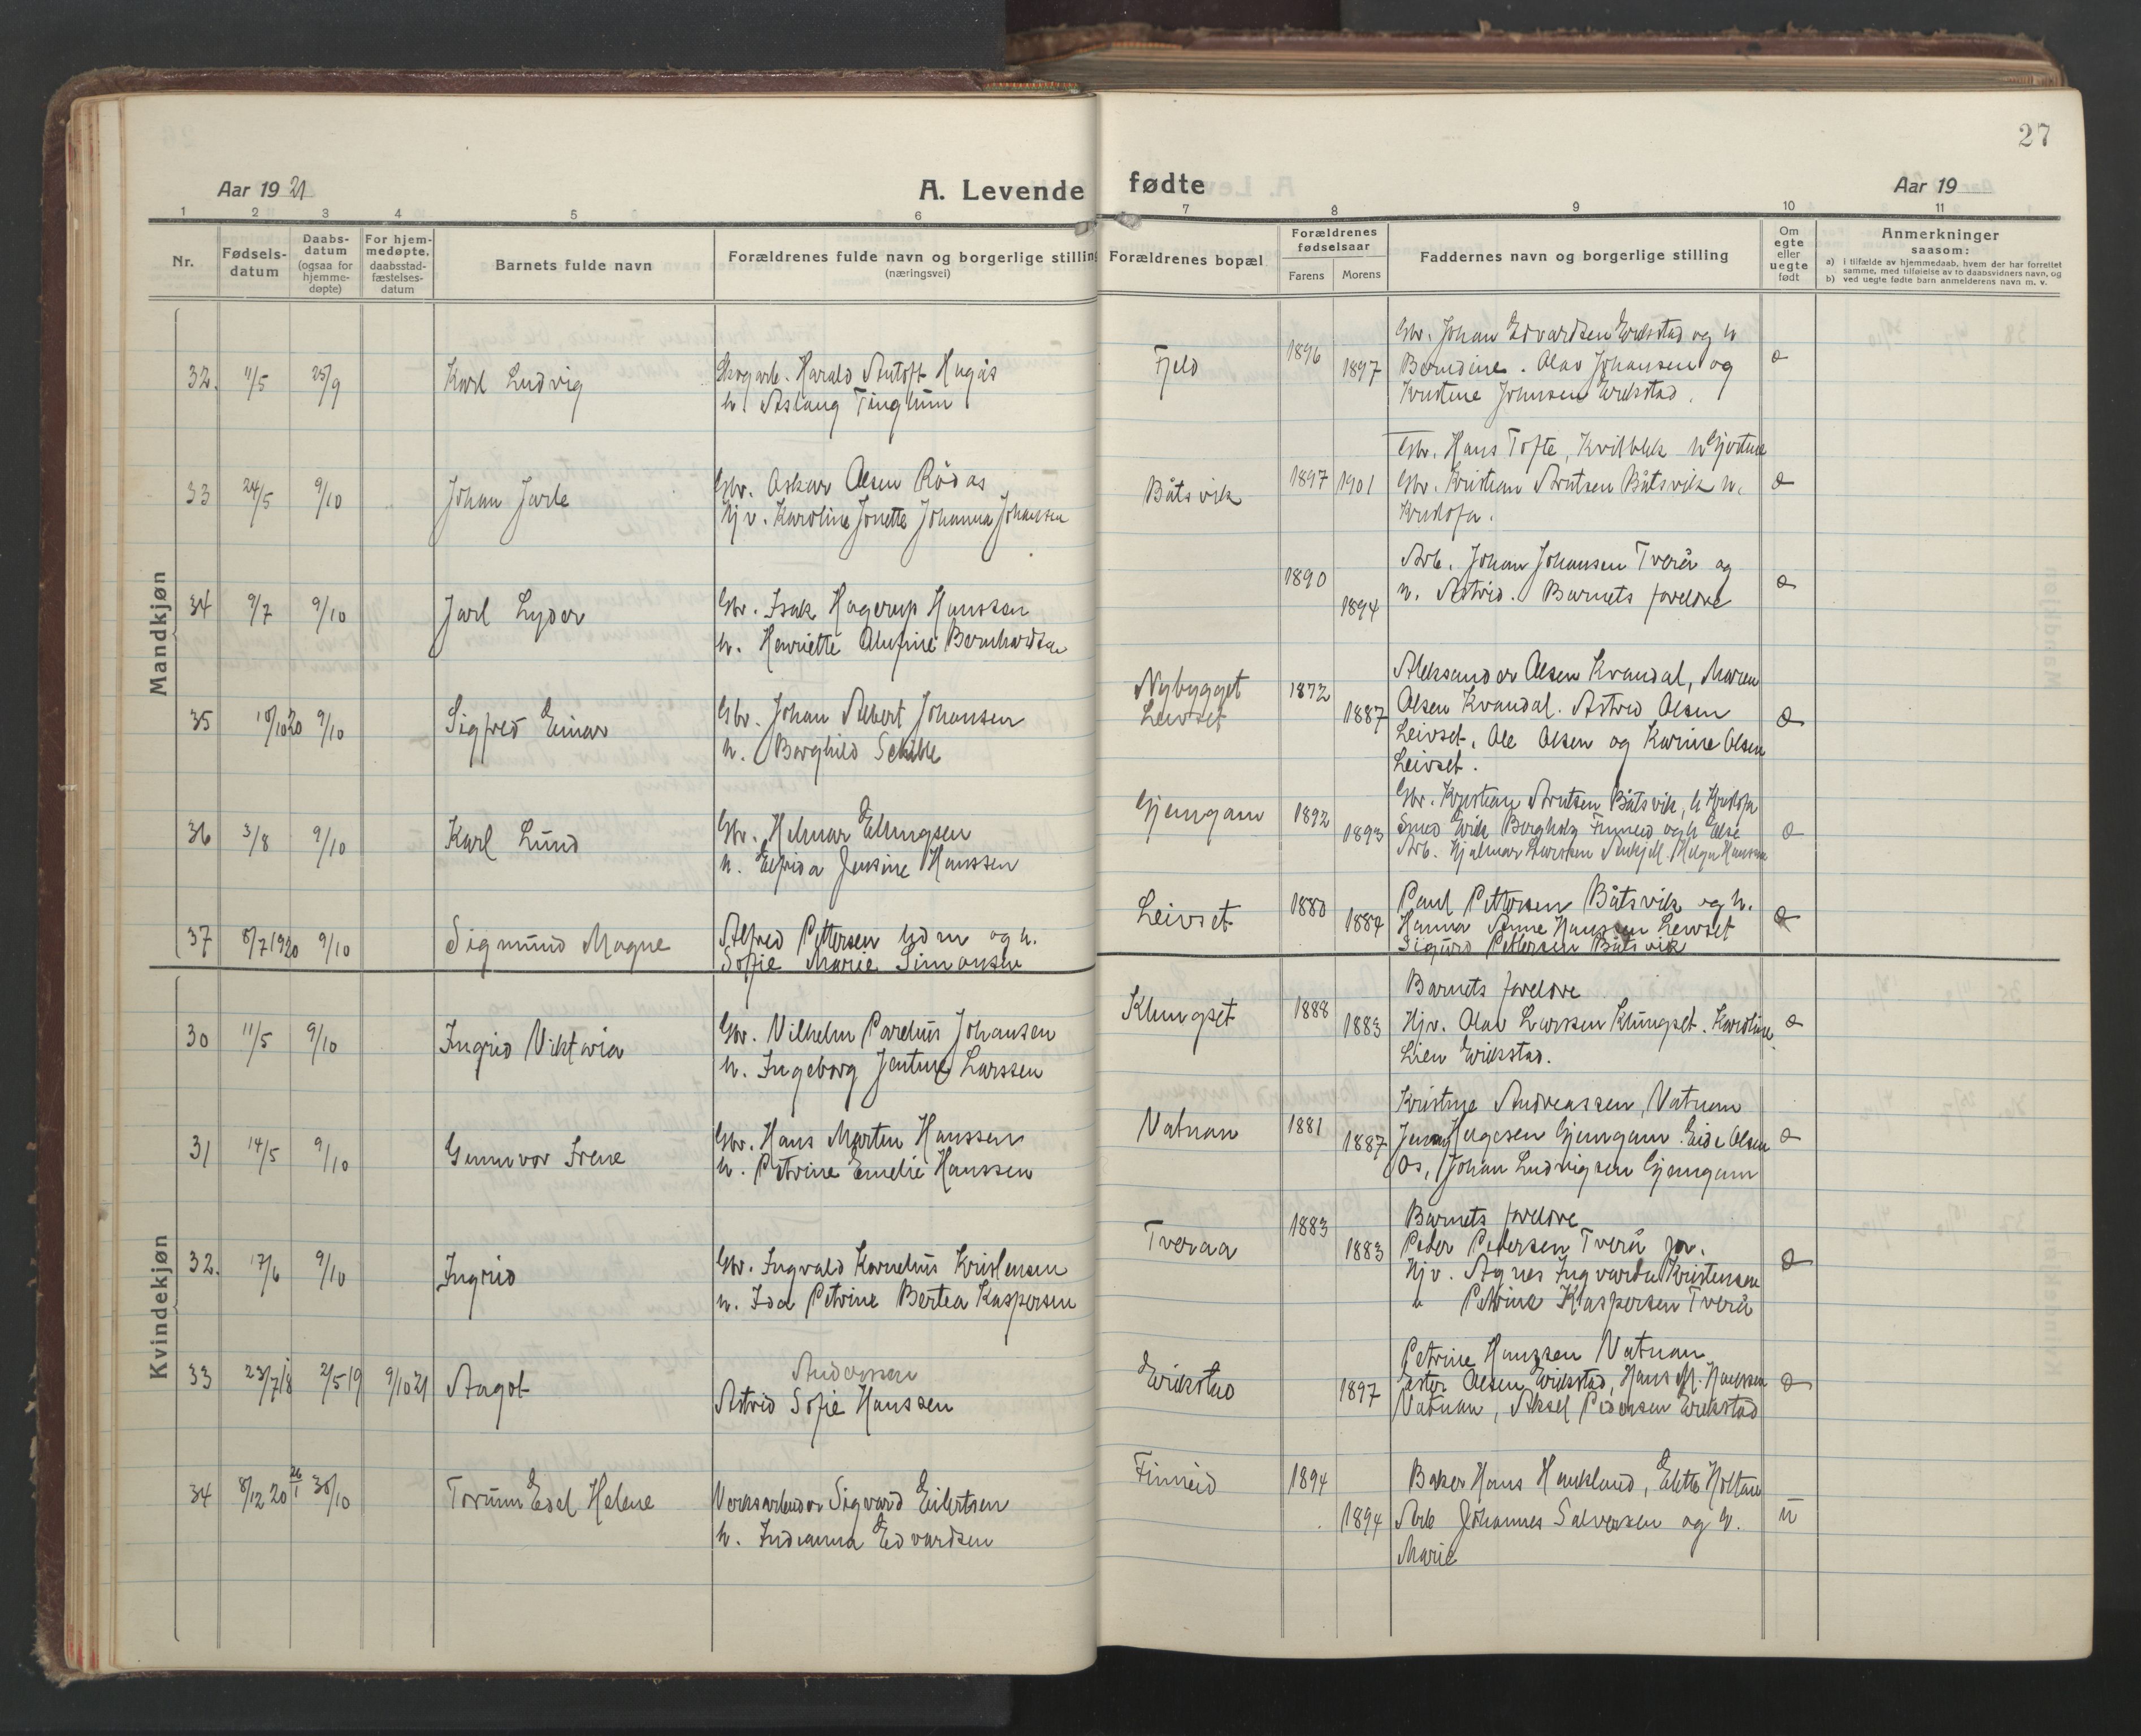 27
Aar 1921
A. Levende fødte
Aar 19
1 2 3 4 5 6 7 8 9 10 11
Nr.
Fødsels-
datum
Daabs-
datum
(ogsaa for
hjemme-
døpte)
For hjem-
medøpte,
daabsstad-
fæstelses-
datum
Barnets fulde navn
Forældrenes fulde navn og borgerlige stilling
(næringsvei)
Forældrenes bopæl
Forældrenes
fødselsaar
Farens Morens
Faddernes navn og borgerlige stilling
Om
egte
eller
uegte
født
Anmerkninger
saasom:
a) i tilfælde av hjemmedaab, hvem der har forrettet
samme, med tilføielse av to daabsvidners navn, og
b) ved uegte fødte barn anmelderens navn m. v.
Mandkjøn
32. 11/5 25/9 Karl Ludvig
Skogarb. Harald Antoft Hugås
h. Aslaug
Fjeld 1896 1897
Gbr. Johan Edvardsen Erikstad og h.
Berndine. Olav Johansen og
Kristine Johnsen Erikstad.
e
33 24/5 9/10 Johan Jarle
Gbr. Oskar Olsen Rødås
Hjv. Karoline Jonette Johanna Johansen
Båtsvik 1897 1901
Gbr. Hans Tofte, h.
Gbr. Kristian Arntsen Båtsvik h.
Kristofa.
e
34 9/7 9/10 Jarl Lyder
Gbr. Isak Hagerup Hanssen
h. Henriette Olufine Bernhardsen
1890 1894
Arb. Johan Johansen Tverå og
h. Astrid. Barnets foreldre
e
35 10/1020 9/10 Sigfred Einar
Gbr. Johan Albert Johansen
h. Borghild
Nybygget
Leivset
1872 1887
Aleksander Olsen Kvandal, Maren
Olsen Kvandal. Astrid Olsen
Leivset, Ole Olsen og Karine Olsen
Leivset.
e
36 3/8 9/10 Karl Lund
Gbr. Helmar Ellingsen
h. Elfrida Jensine Hanssen
Gjemgam 1892 1893
Gbr. Kristian Arntsen Båtsvik, h. Kristofa
Smed Erik Finneid og h. Else
Arb. Hjalmar Larssen Helga Hanssen
e
37 8/7 1920 9/10 Sigmund Magne
Alfred Pettersen og h.
Sofie Marie Simonsen
Leivset 1880 1884
Paul Pettersen Båtsvik og h.
Hanna Anne Hanssen Leivset
Sigurd Pettersen Båtsvik
e
Kvindekjøn
30 11/5 9/10 Ingrid Viktoria
Gbr. Vilhelm Parelius Johansen
h. Ingeborg Jentine Larssen
Klungset 1888 1883
Barnets foreldre
Hjv. Olav Larssen Klungset. Karoline
Lien Erikstad.
e
31 14/5 9/10 Gunnvor Irene
Gbr. Hans Martin Hanssen
h. Petrine Emelie Hanssen
Vatnan 1881 1887
Kristine Andreassen, Vatnan
Jenny Helgesen Gjemgam. Eide Olsen
Os, Johan Ludvigsen Gjemgam
e
32. 17/6 9/10 Ingrid
Gbr. Ingvald Kornelius Kristensen
h. Ida Petrine Bertea Kaspersen
Tveraa 1883 1883
Barnets foreldre
Peder Pedersen Tverå jr.
Hjv. Agnes Ingvarda Kristensen
" Petrine Kaspersen Tverå
e
33 23/7 18 2/5 19 9/10 21 Aagot
Anderssen
Astrid Sofie Hanssen
Erikstad 1897
Petrine Hanssen Vatnan
Ester Olsen Erikstad, Hans M. Hanssen
Vatnan, Aksel Pedersen Erikstad
e
34 8/12 20 26/1 30/10 Torunn Edel Helene
Verksarbeider Sigvard Eilertsen
h. Indianna Edvardsen
Finneid 1894 1894
Baker Hans Haukland, Elette Holtan
Arb Johannes Salvesen og h.
Marie
u